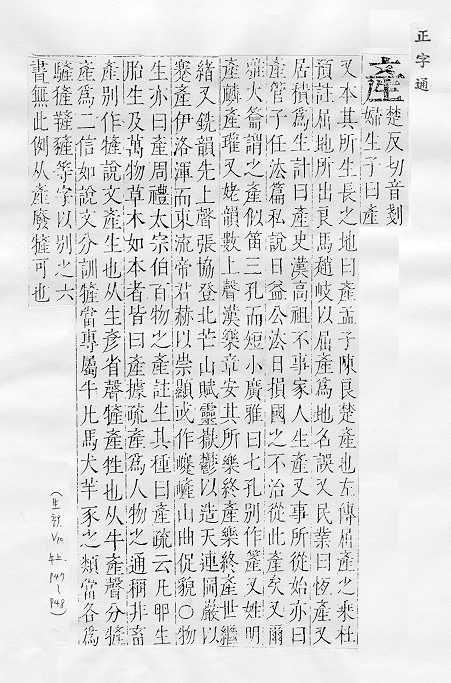 正字通
產
楚反切音剗
婦生子曰產
又本其所生長之地曰產孟子陳良楚產也左傳屈產之乘杜
預註屈地所出良馬趙岐以屈產為地名誤又民業曰恆產又
居積為生計曰產史漢高祖不事家人生產又事所從始亦曰
產管子任法篇私說日益公法日損國之不治從此產矣又爾
雅大籥謂之產似笛三孔而短小廣雅曰七孔別作簅又姓明
產麟產瓘又姥韻數上聲漢樂章安其所樂終產樂終產世繼
緒又銑韻先上聲張協登北芒山賦靈嶽鬱以造天連岡巖以
蹇產伊洛渾而東流帝居赫以崇顯或作嵼山曲貌○物
生亦曰產周禮太宗伯百物之產註生其種曰產疏云凡卵生
胎生及萬物草木如本者皆曰產據疏產為人物之通稱非畜
產別作㹌說文產生也从生彥省聲㹌產牲也从牛產聲分㹌
產為二信如說文分訓㹌當專屬牛凡馬犬羊豕之類當各為
等字以別之六
書無此例从產廢㹌可也
P47
P48